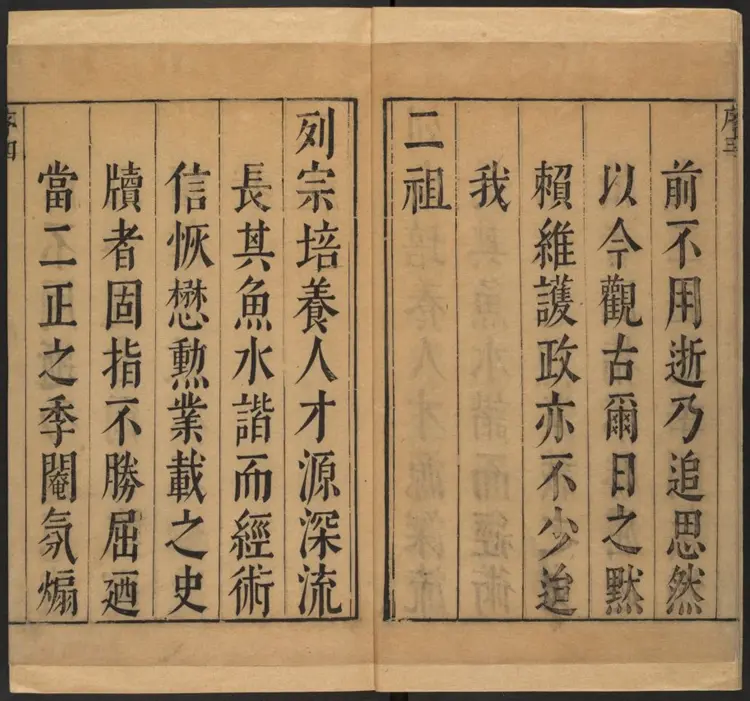 前不用逝乃追思然
以今觀古爾日之默
賴維護政亦不少迨
我
二祖
列宗培養人才源深流
長其魚水諧而經術
信恢懋勳業載之史
牘者固指不勝屈廼
當二正之季閹氛煽